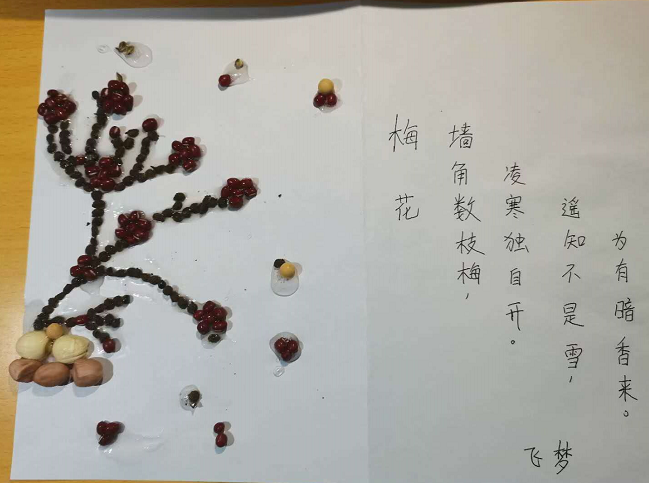 梅花
墙角数枝梅，
凌寒独自开。
遥知不是雪，
为有暗香来。
飞梦